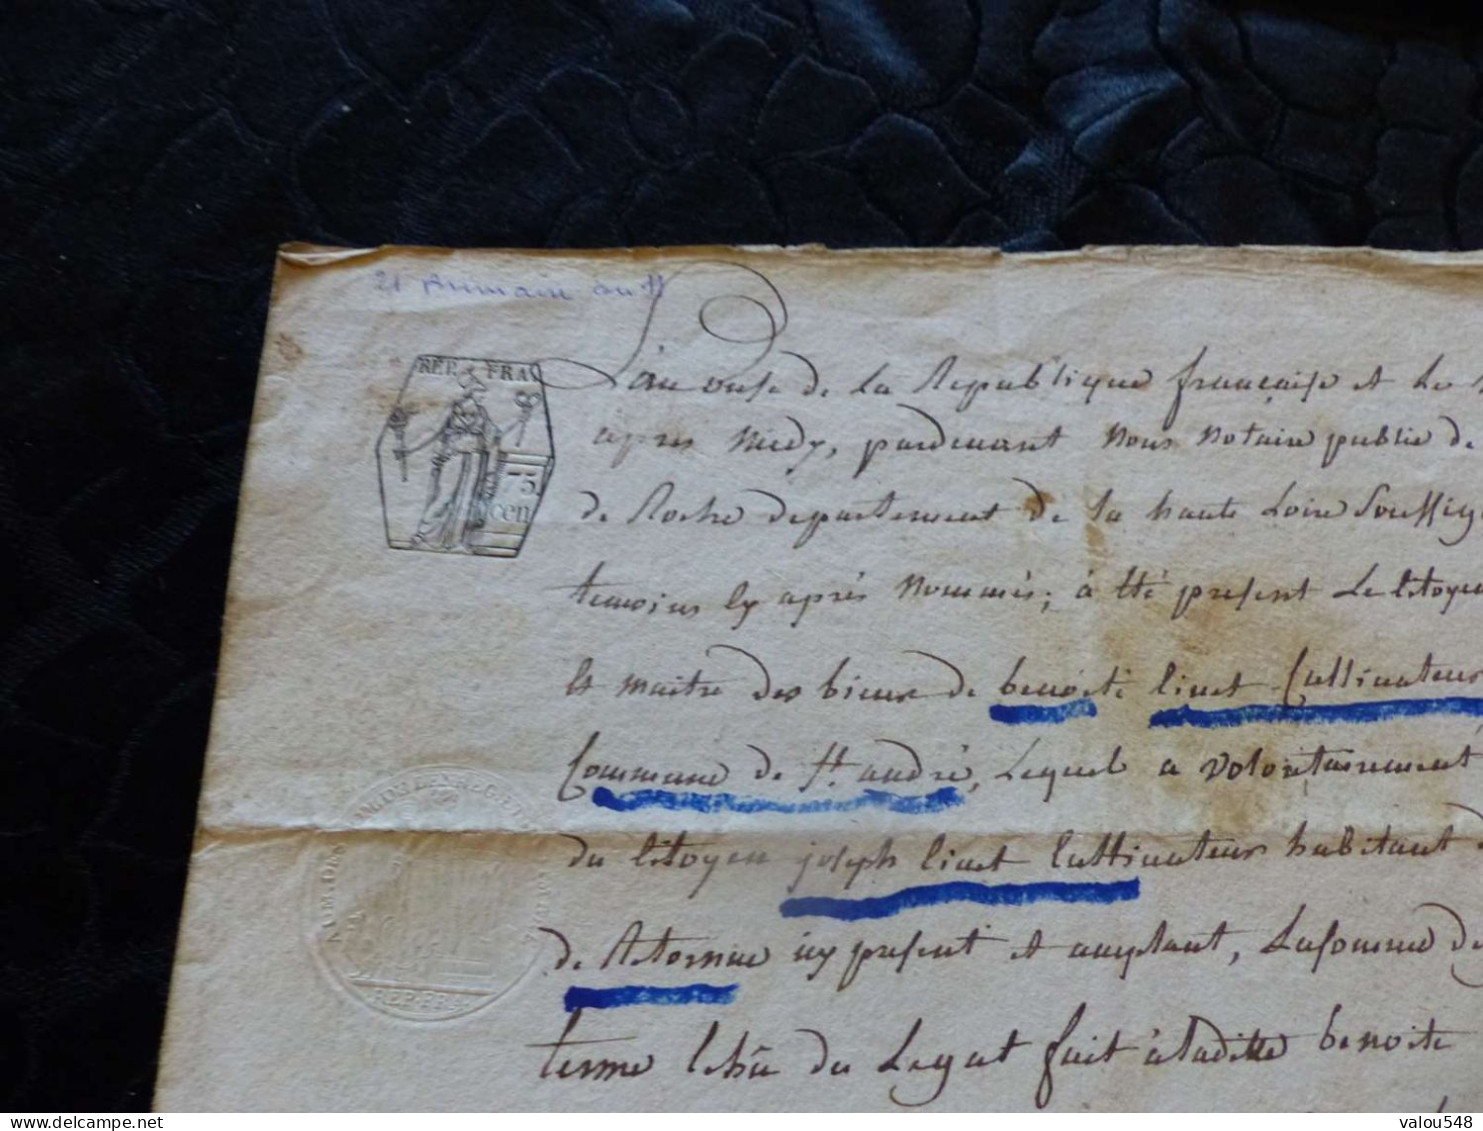 21 frimaire an 11
REP. FRA
75
cen
L'an onze de la Republique française et le
après midy, pardevant nous notaire public de
de Roche departement de la haute Loire Soussig
temoins cy après nommés; à été present Le Citoye
et maitre des biens de benoite linet Cultivateur
Commune de St. andré, Lequel a volontairement
du Citoyen joseph linet Cultivateur habitant
de Retornac icy present et acceptant, La somme de
terme échu du Legat fait à ladite benoite
REP. FRA
valou548